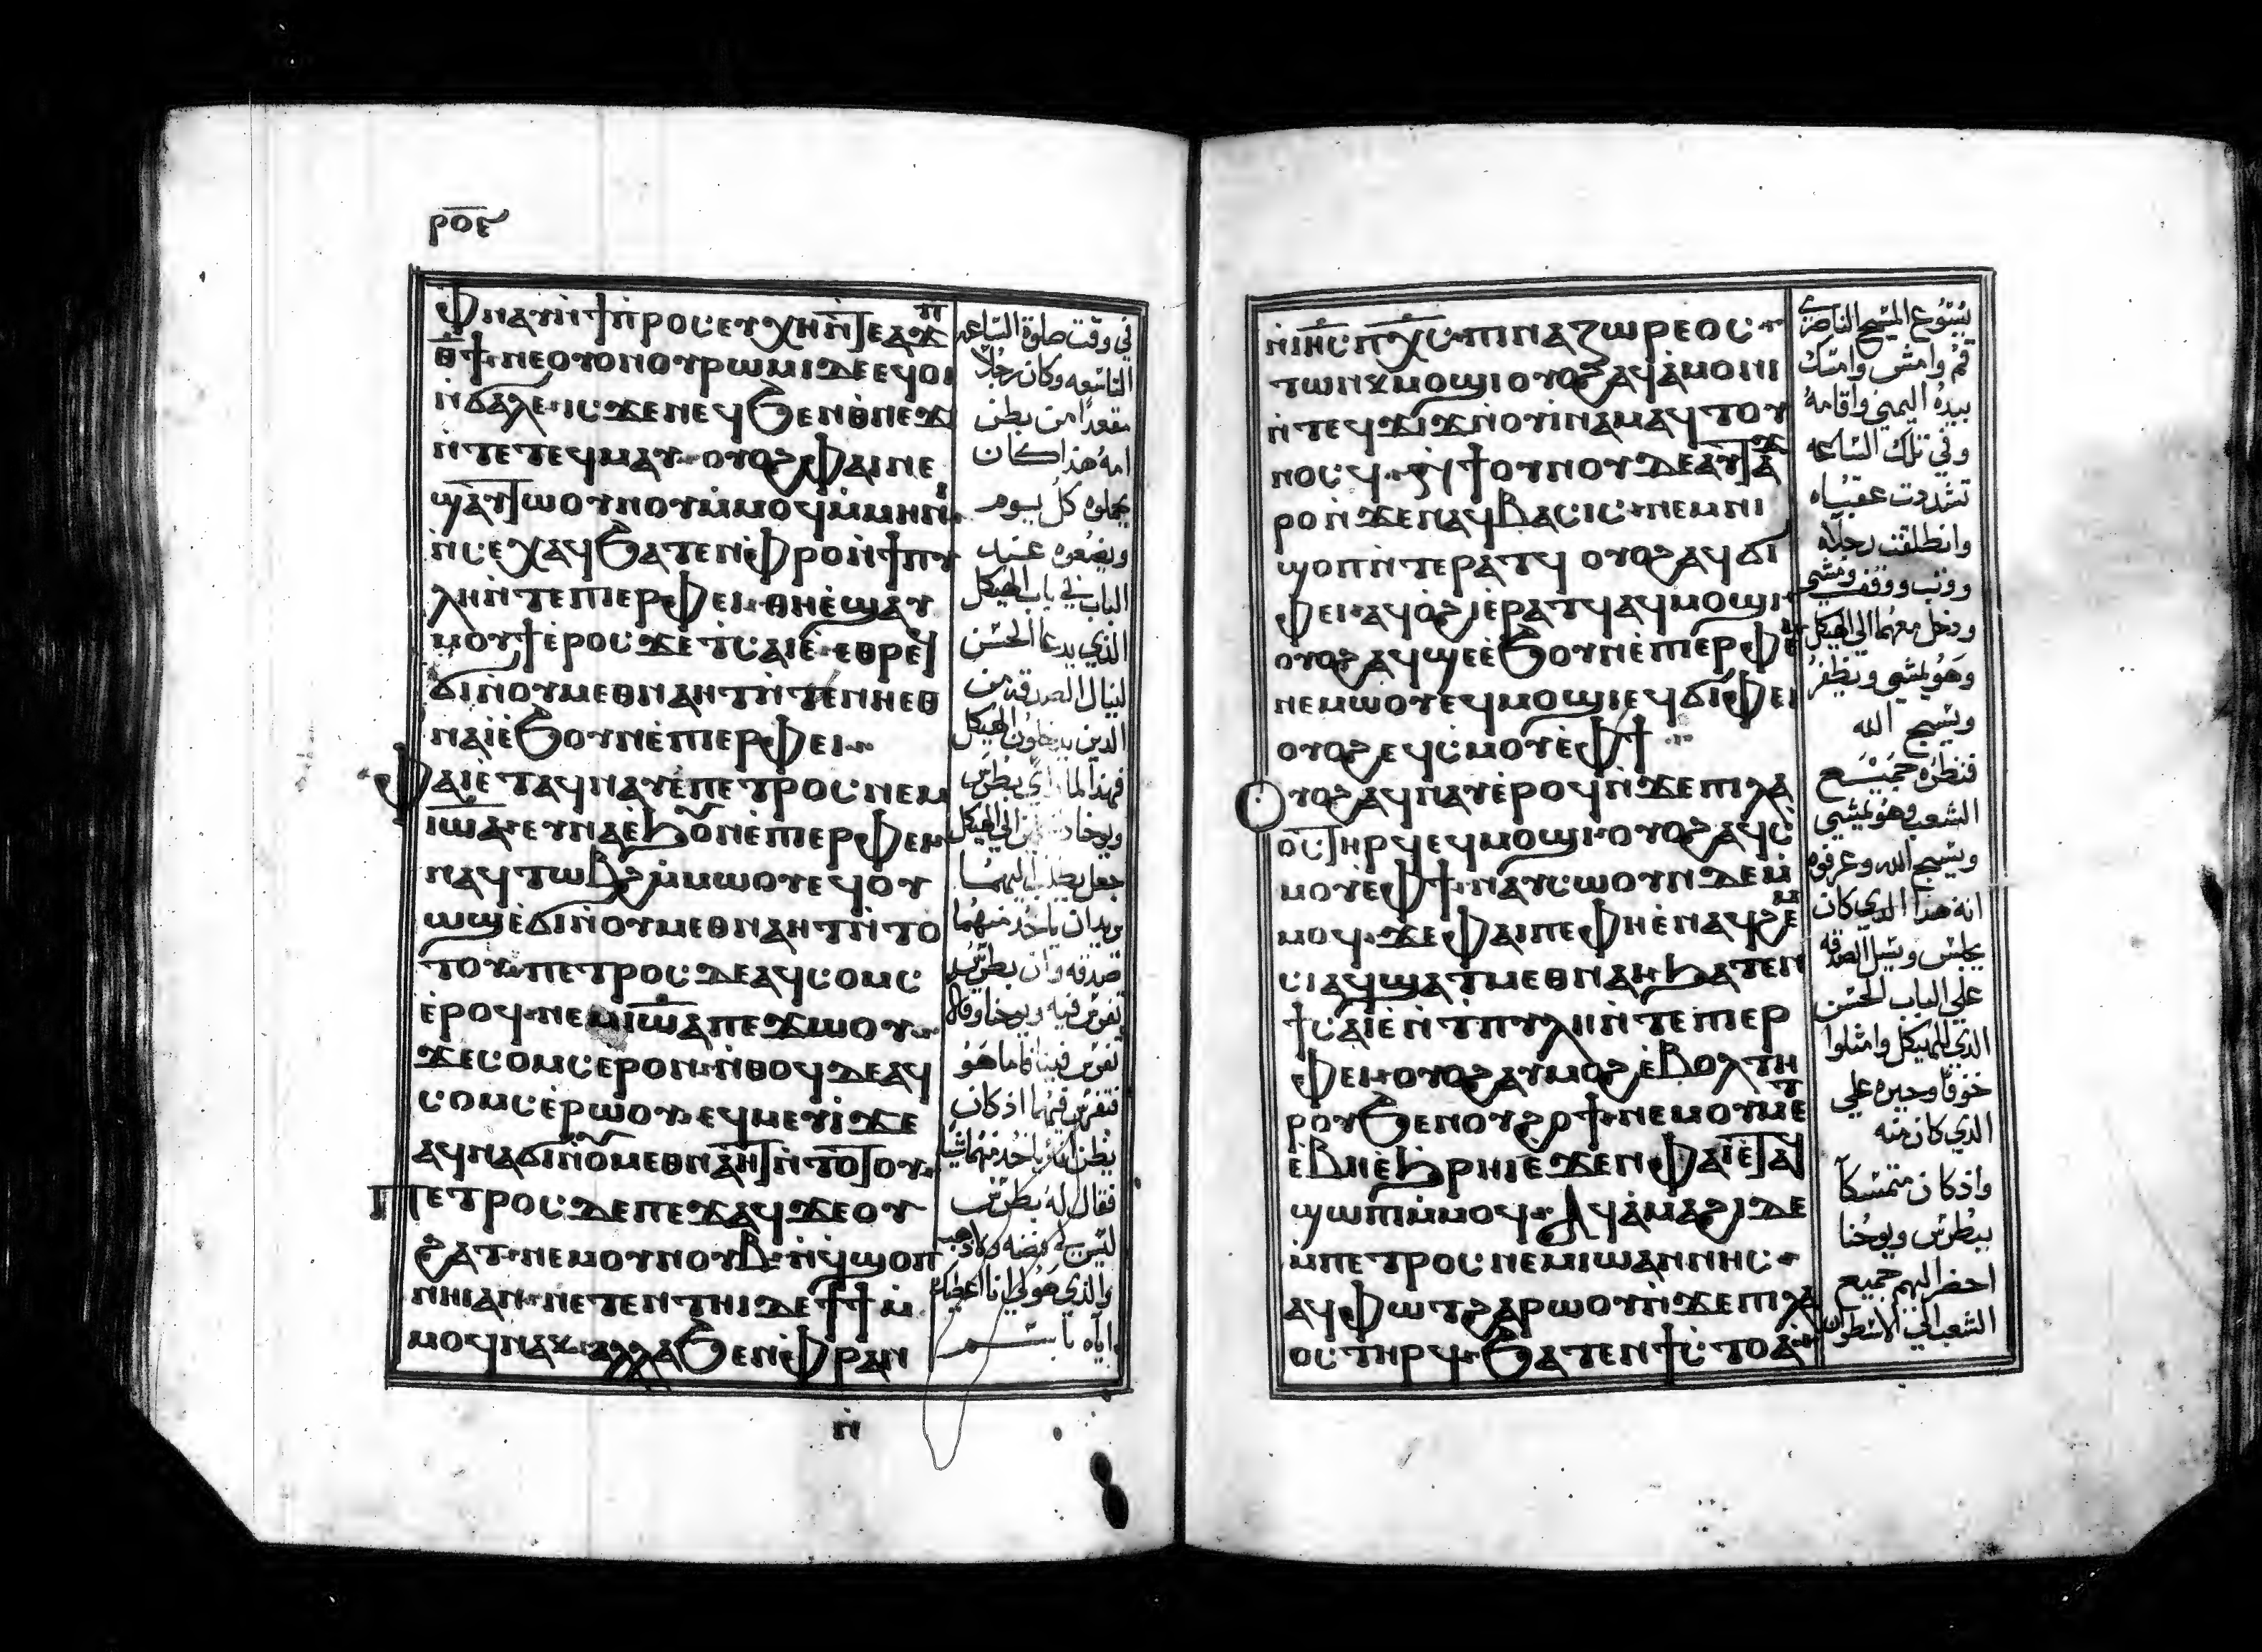 ⲣⲟⲉ
ⲫⲛⲁⲩⲛ̀ϯⲡ̀ⲣⲟⲥⲉⲩⲭⲏⲛ̀ⲧⲉⲁϫⲡ
ⲑ̅ϯ·ⲛⲉⲟⲩⲟⲛⲟⲩⲣⲱⲙⲓⲇⲉⲉϥⲟⲓ
ⲛ̀ϭⲁⲗⲉ·ⲓⲥϫⲉⲛⲉϥϧⲉⲛⲑⲛⲉϫⲓ
ⲛ̀ⲧⲉⲧⲉϥⲙⲁⲩ·ⲟⲩⲟϩⲫⲁⲓⲛⲉ
ϣⲁⲩⲧⲱⲟⲩⲛⲟⲩⲙ̀ⲙⲟϥⲙ̀ⲙⲏⲛⲓ
ⲛ̀ⲥⲉⲭⲁϥϧⲁⲧⲉⲛⲫ̀ⲣⲟⲛ̀ϯⲡⲩ
ⲗⲏⲛ̀ⲧⲉⲡⲓⲉⲣⲫⲉⲓ·ⲑⲏⲉ̀ϣⲁⲩ
ⲙⲟⲩϯⲉ̀ⲣⲟⲥϫⲉϯⲥⲁⲓⲉ̀·ⲉⲑⲣⲉϥ
ϭⲓⲛ̀ⲟⲩⲙⲉⲑⲛⲁⲏⲧⲛ̀ⲧⲉⲛⲛⲏⲉⲑ
ⲛⲁⲓ̀ⲉ̀ϧⲟⲩⲛⲉ̀ⲡⲓⲉⲣⲫⲉⲓ·
ⲫⲁⲓⲉ̀ⲧⲁϥⲛⲁⲩⲉ̀ⲡⲉⲧⲣⲟⲥⲛⲉⲙ
ⲓⲱⲁ·ⲉⲩⲛⲁⲉϧⲟⲛⲉ̀ⲡⲓⲉⲣⲫⲉⲓ
ⲛⲁϥⲧⲱⲃϩⲙ̀ⲙⲱⲟⲩⲉϥⲟⲩ
ⲱϣⲉ̀ϭⲓⲛ̀ⲟⲩⲙⲉⲑⲛⲁⲏⲧⲛ̀ⲧⲟ
ⲧⲟⲩ·ⲡⲉⲧⲣⲟⲥⲇⲉⲁϥⲥⲟⲙⲥ
ⲉ̀ⲣⲟϥ·ⲛⲉⲙⲓⲱⲁⲡⲉϫⲱⲟⲩ·
ϫⲉⲥⲟⲙⲥⲉ̀ⲣⲟⲛ·ⲛ̀ⲑⲟϥⲇⲉⲁϥ
ⲥⲟⲙⲥⲉ̀ⲣⲱⲟⲩ·ⲉϥⲙⲉⲩⲓ̀ϫⲉ
ⲁϥⲛⲁϭⲓⲛ̀ⲟⲙⲉⲑⲛⲁⲏⲧⲛ̀ⲧⲟⲧⲟⲩ·
ⲡⲉⲧⲣⲟⲥⲇⲉⲡⲉϫⲁϥϫⲉⲟⲩ
ϩⲁⲧ·ⲛⲉⲙⲟⲩⲛⲟⲩⲃ·ⲛ̀ϥϣⲟⲡ
ⲛⲏⲓⲁⲛ·ⲡⲉⲧⲉⲛⲧⲏⲓⲇⲉϯϯⲙ̀
ⲙⲟϥⲛⲁⲕ·ⲁⲗⲗⲁϧⲉⲛⲫ̀ⲣⲁⲛ
ⲛ̀
في وقت صلوة الساعه
التاسعه وكان رجلاً
مقعداً من بطن
امه هذا كان
يحملوه كل يوم
ويضعوه عند
الباب في باب الهيكل
الذي يدعا الحسن
لينال الصدقه من
الذين يدخلون الهيكل
فهذا لما راي بطرس
جعل يطلب اليهما
يريدان ياخذ منهما
صدقه وان بطرس
تفرس فيه ويوحنا وقالا
تفرس فينا فاما هو
فتفرس فيهما اذ كان
يظن انه ياخذ منهما شيا
فقال له بطرس
ليس لي فضه ولا ذهب
والذي هو لي انا اعطيك
اياه باسم
ⲛ̀ⲓⲏⲥⲡⲭⲥ·ⲡⲓⲛⲁⲍⲱⲣⲉⲟⲥ·
ⲧⲱⲛⲕⲙⲟϣⲓⲟⲩⲟϩⲁϥⲁ̀ⲙⲟⲛⲓ
ⲛ̀ⲧⲉϥϫⲓϫⲛ̀ⲟⲩⲓ̀ⲛⲁⲙⲁϥⲧⲟⲩ
ⲛⲟⲥϥ·ϩⲓϯⲟⲩⲛⲟⲩⲇⲉⲁⲩⲧⲁϫ
ⲣⲟⲛ̀ϫⲉⲛⲁϥⲃⲁⲥⲓⲥ·ⲛⲉⲙⲛⲓ
ϣⲟⲡⲛ̀ⲧⲉⲣⲁⲧϥ ⲟⲩⲟϩⲁϥϭⲓ
ⲫⲉⲓ·ⲁϥⲟ̀ϩⲓⲉ̀ⲣⲁⲧϥⲁϥⲙⲟϣⲓ·
ⲟⲩⲟϩⲁϥϣⲉⲉ̀ϧⲟⲩⲛⲉ̀ⲡⲓⲉⲣⲫⲉⲓ
ⲛⲉⲙⲱⲟⲩⲉϥⲙⲟϣⲓⲉϥϭⲓⲫⲉⲓ
ⲟⲩⲟϩⲉϥⲥ̀ⲙⲟⲩⲉ̀ⲫϯ
ⲟⲩⲟϩⲁϥⲛⲁⲩⲉ̀ⲣⲟϥⲛ̀ϫⲉⲡⲓⲗⲁ
ⲟⲥⲧⲏⲣϥⲉϥⲙⲟϣⲓ·ⲟⲩⲟϩⲁϥⲥ̀
ⲙⲟⲩⲉ̀ⲫϯ·ⲛⲁⲩⲥⲱⲟⲩⲛⲇⲉⲙ̀
ⲙⲟϥ·ϫⲉⲫⲁⲓⲡⲉⲫⲏⲉ̀ⲛⲁϥϩⲉⲙ
ⲥⲓⲁϥϣⲁⲧⲙⲉⲑⲛⲁⲏϧⲁⲧⲉⲛ
ϯⲥⲁⲓⲉ̀ⲛ̀ⲧⲡⲩⲗⲏⲛ̀ⲧⲉⲡⲓⲉⲣ
ⲫⲉⲓ·ⲟⲩⲟϩⲁⲩⲙⲟϩⲉ̀ⲃⲟⲗⲧⲏ
ⲣⲟⲩϧⲉⲛⲟⲩϩⲟϯ·ⲛⲉⲙⲟⲩⲙⲉⲧ
ⲉ̀ⲃⲓⲉ̀ϩⲣⲏⲓⲉϫⲉⲛⲫⲁⲓⲉ̀ⲧⲁϥ
ϣⲱⲡⲓⲙ̀ⲙⲟϥ·ⲁϥⲁ̀ⲙⲁϩⲓⲇⲉ
ⲙ̀ⲡⲉⲧⲣⲟⲥⲛⲉⲙⲓⲱⲁⲛⲛⲏⲥ·
ⲁϥⲫⲱⲧϩⲁⲣⲱⲟⲩⲛ̀ϫⲉⲡⲓⲗⲁ
ⲟⲥⲧⲏⲣϥ·ϧⲁⲧⲉⲛϯⲥⲧⲟⲁ̀·
يسوع المسيح الناصري
قم وامش وامسك
بيده اليمني واقامه
وفي تلك الساعه
تشددت عقباه
وانطلقت رجلاه
ووثب ووقف ومشي
ودخل معهما الي الهيكل
وهو يمشي ويظفر
ويسبح الله
فنظره جميع
الشعب وهو يمشي
ويسبح الله وعرفوه
انه هذا الذي كان
يجلس ويسل الصدقه
علي الباب الحسن
الذي للهيكل وامتلوا
خوفا وحيره علي
الذي كان منه
واذ كان متمسكاً
ببطرس ويوحنا
احضر اليهم جميع
الشعب الي الاسطوان